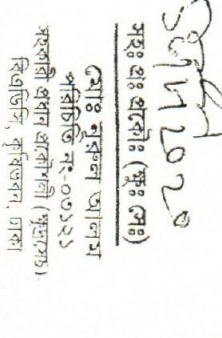 সহঃ প্রঃ প্রকৌঃ (ক্ষুঃ সেঃ)
মোঃ নূরুল আলম
পরিচিতি নং-০৩১২১
সহকারী প্রধান প্রকৌশলী (ক্ষুদ্রসেচ)
বিএডিসি, কৃষিভবন, ঢাকা